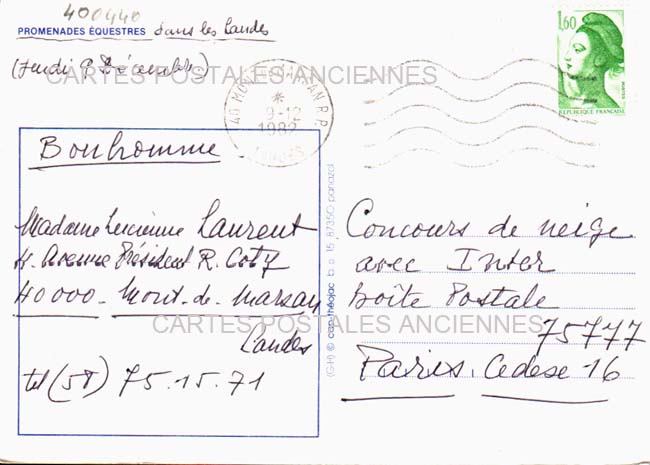 400440
PROMENADES ÉQUESTRES dans les Landes
(Jeudi 9 Décembre)
CARTES POSTALES ANCIENNES
1,60
POSTES
REPUBLIQUE FRANÇAISE
40 MONT-DE-MARSAN R.P.
9-12
1982
LANDES
Bonhomme
Madame Lucienne Laurent
4. Avenue Président R. Coty
40000 - Mont-de-Marsan
Landes
tel (58) 75.15.71
CARTES POSTALES ANCIENNES
(G-H) © cap-théojac b.p. 15 87350 panazol
Concours de neige
avec Inter
boîte Postale
75777
Paris. Cedese 16